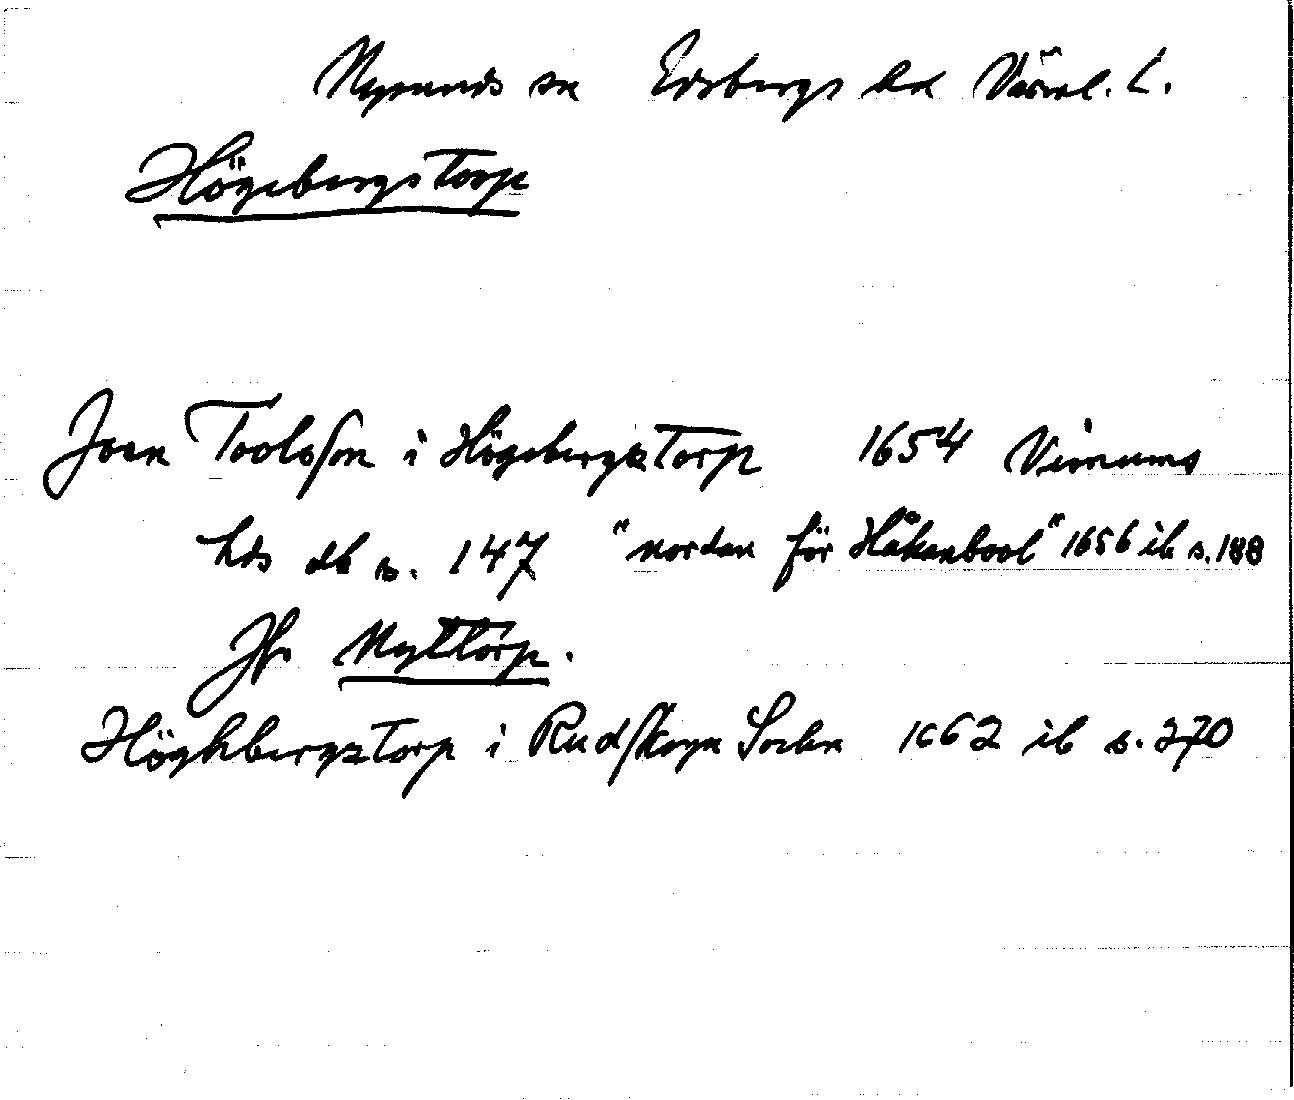 Nysunds sn Edsbergs hd Värml. L.
Högebergstorp
Joen Toolsson i Högebergztorp 1654 Visnums
hds db s. 147 "nordan för Håkanbool" 1656 ib s. 188
Jfr Nyttorp.
Höghbergztorp i Rudskoga Sochn 1662 ib s. 270